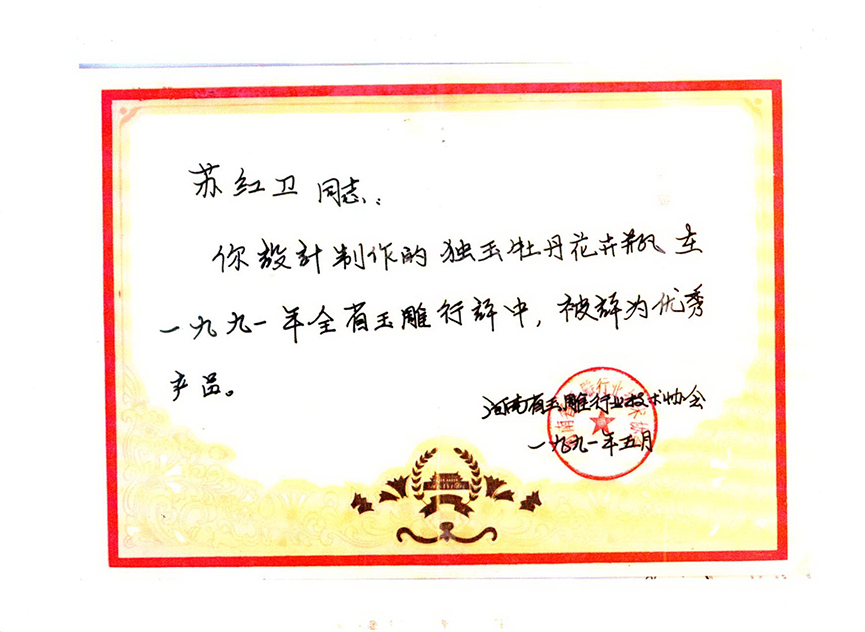 苏红卫同志:
你設計制作的独玉牡丹花卉瓶在
一九九一年全省玉雕行評中,被評为优秀
产品。
河南省玉雕行业技术协会
一九九一年五月